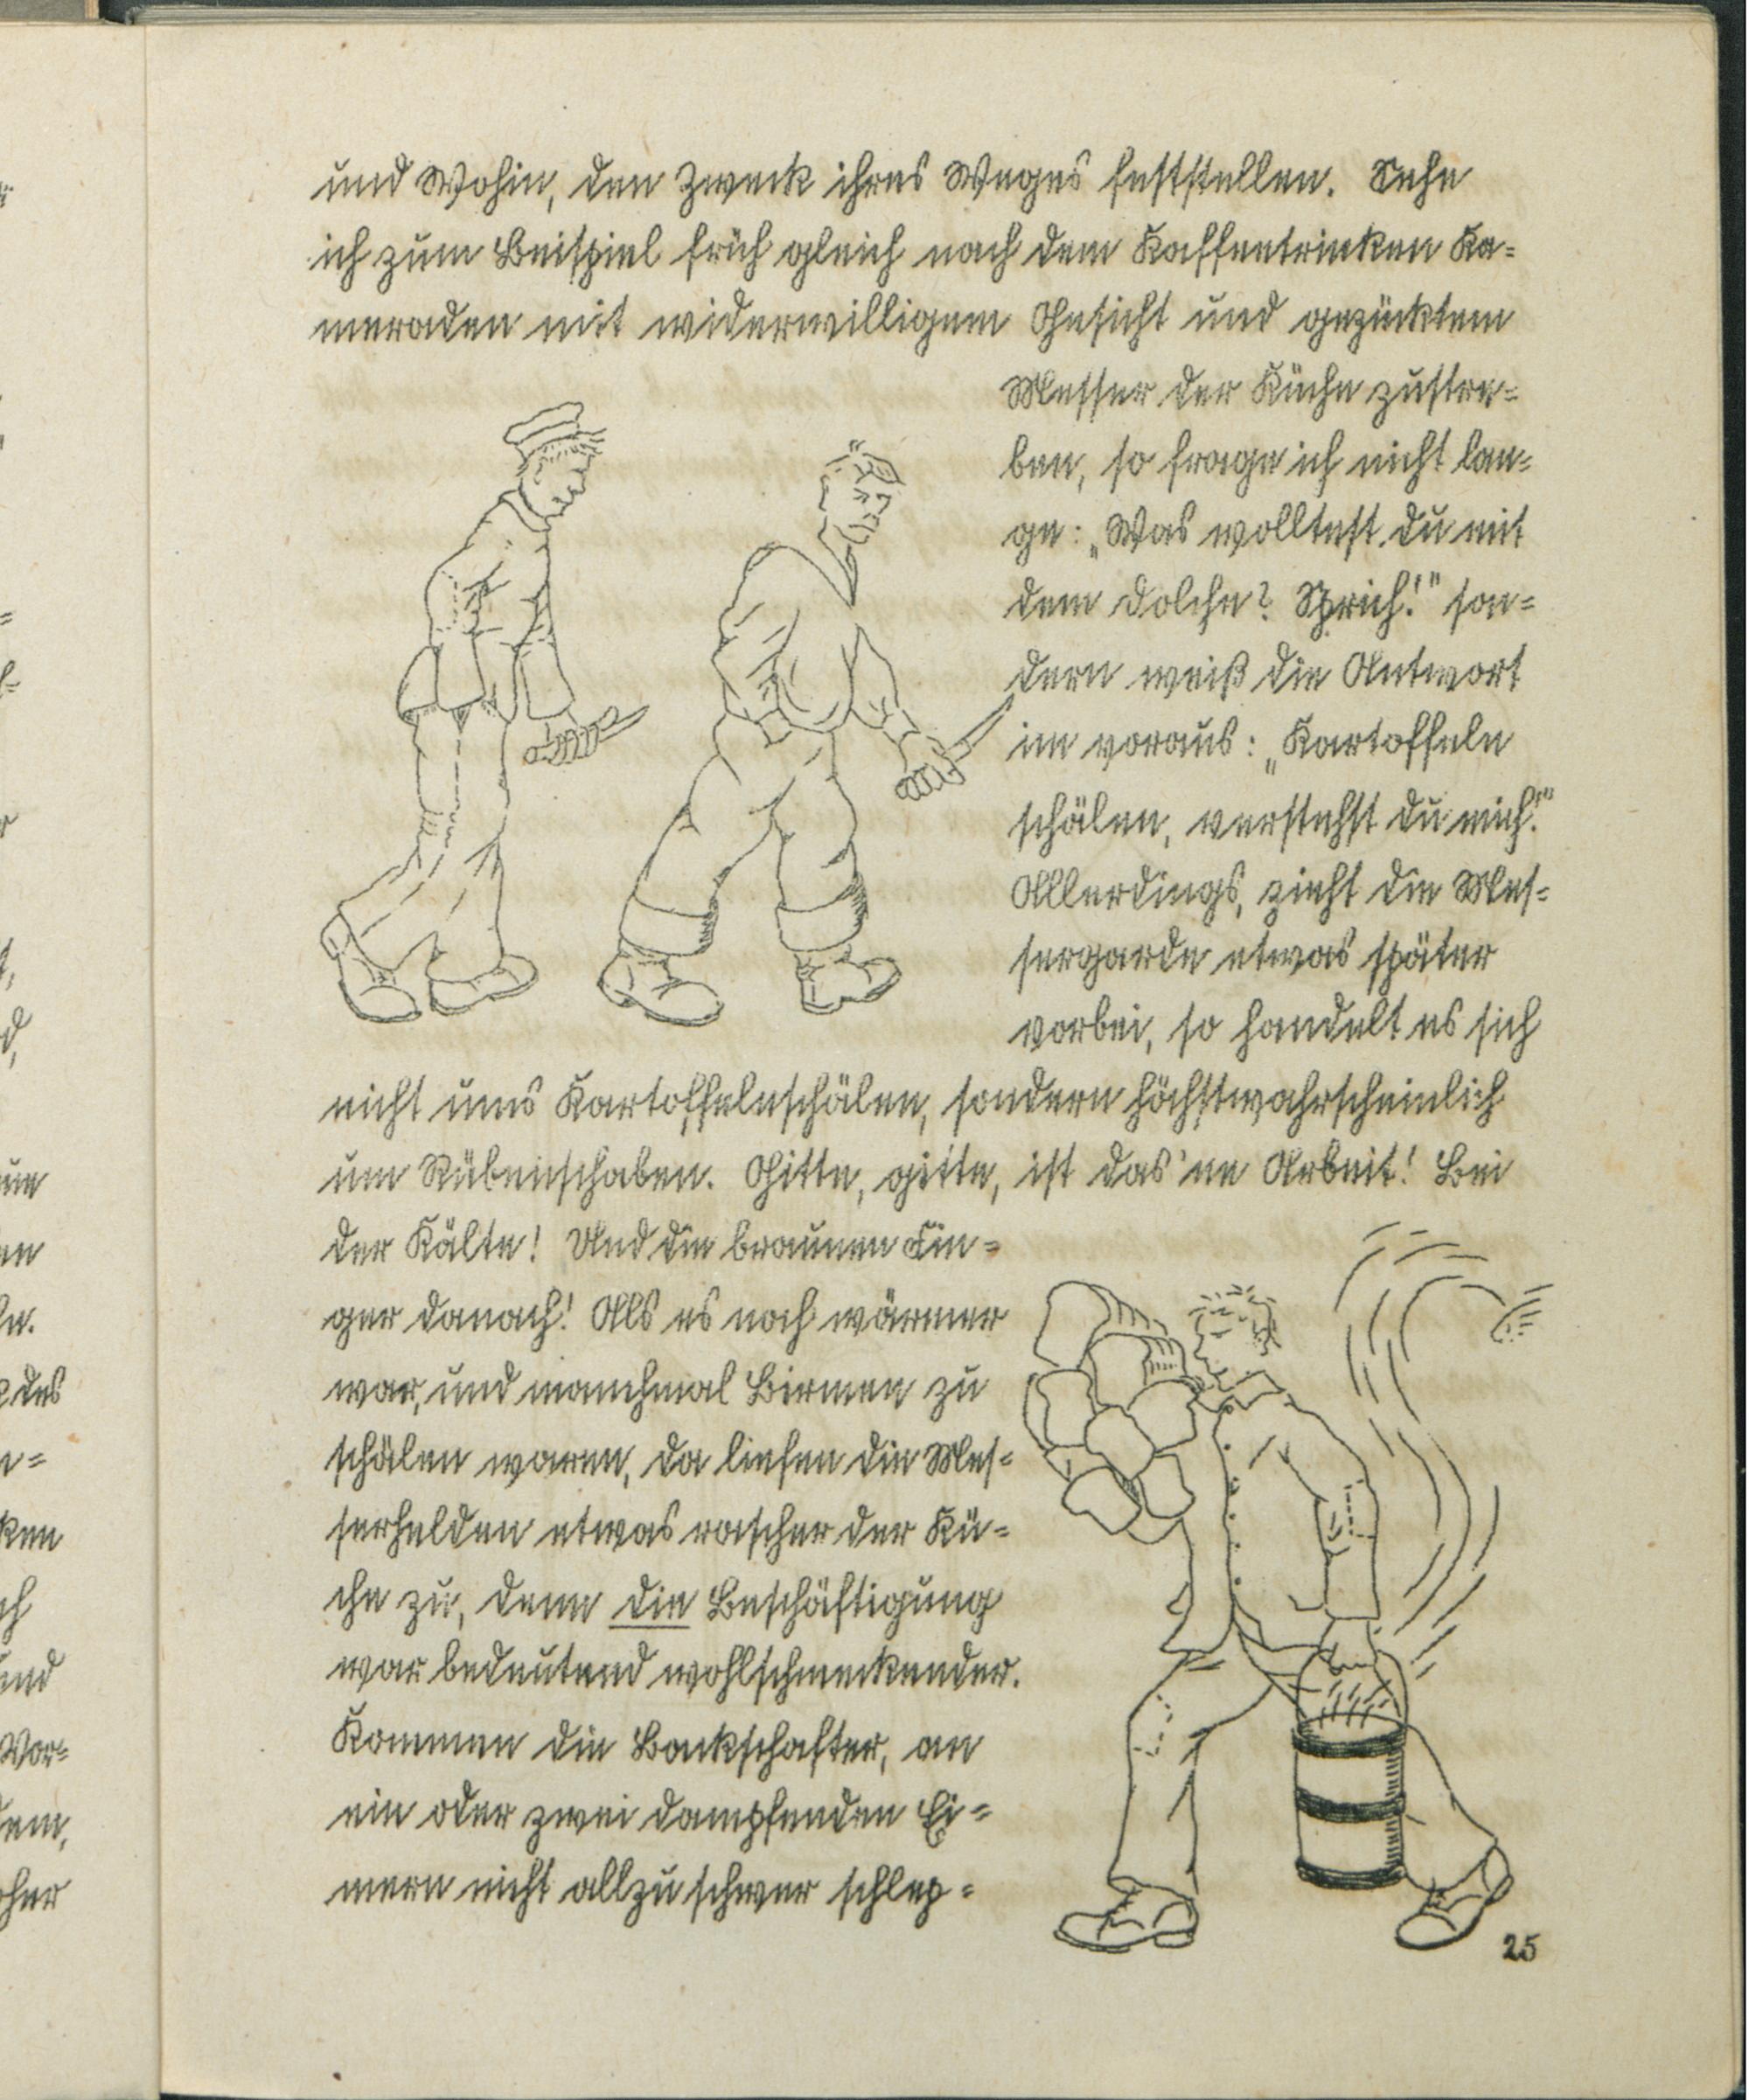 und Wohin, den Zweck ihres Weges feststellen. Sehe
ich zum Beispiel früh gleich nach dem Kaffeetrinken Ka=
meraden mit widerwilligem Gesicht und gezücktem
Messer der Küche zustre=
ben, so frage ich nicht lan=
ge: „Was wolltest du mit
dem Dolche? Sprich!" son=
dern weiß die Antwort
im voraus: „Kartoffeln
schälen, verstehst du mich!"
Allerdings, zieht die Mes=
sergarde etwas später
vorbei, so handelt es sich
nicht ums Kartoffelnschälen, sondern höchstwahrscheinlich
um Rübenschaben. Gitte, gitte, ist das 'ne Arbeit! Bei
der Kälte! Und die braunen Fin=
ger danach! Als es noch wärmer
war, und manchmal Birnen zu
schälen waren, da liefen die Mes=
serhelden etwas rascher der Kü=
che zu, denn die Beschäftigung
war bedeutend wohlschmeckender.
Kommen die Backschafter, an
ein oder zwei dampfenden Ei=
mern nicht allzu schwer schlep=
25